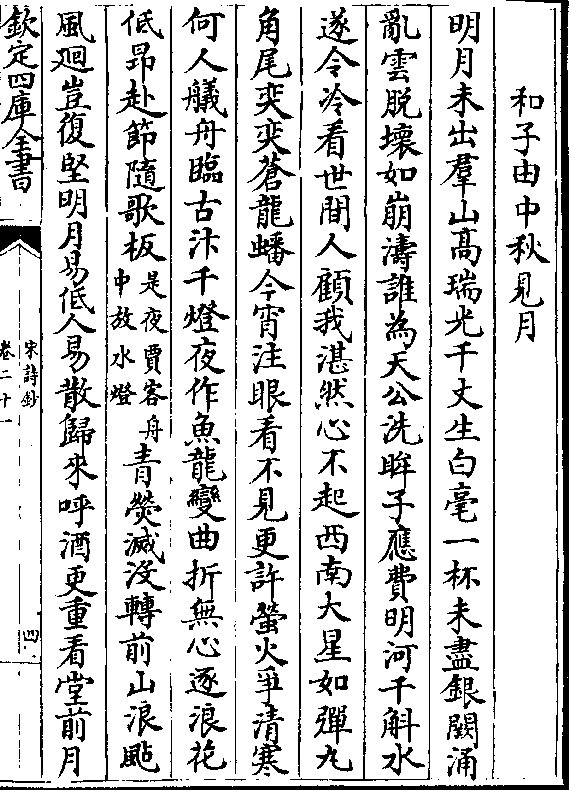 和子由中秋見月
明月未出羣山高瑞光千丈生白毫一杯未盡銀闕涌
亂雲脱壞如崩濤誰為天公洗眸子應費明河千斛水
遂令冷看世間人顧我湛然心不起西南大星如彈丸
角尾奕奕蒼龍蟠今宵注眼看不見更許螢火爭清寒
何人艤舟臨古汴千燈夜作魚龍變曲折無心逐浪花
低昂赴節隨歌板是夜賈客舟中放水燈青熒滅没轉前山浪颭
風廻豈復堅明月易低人易散歸來呼酒更重看堂前月
欽定四庫全書
宋詩鈔
卷二十一
四